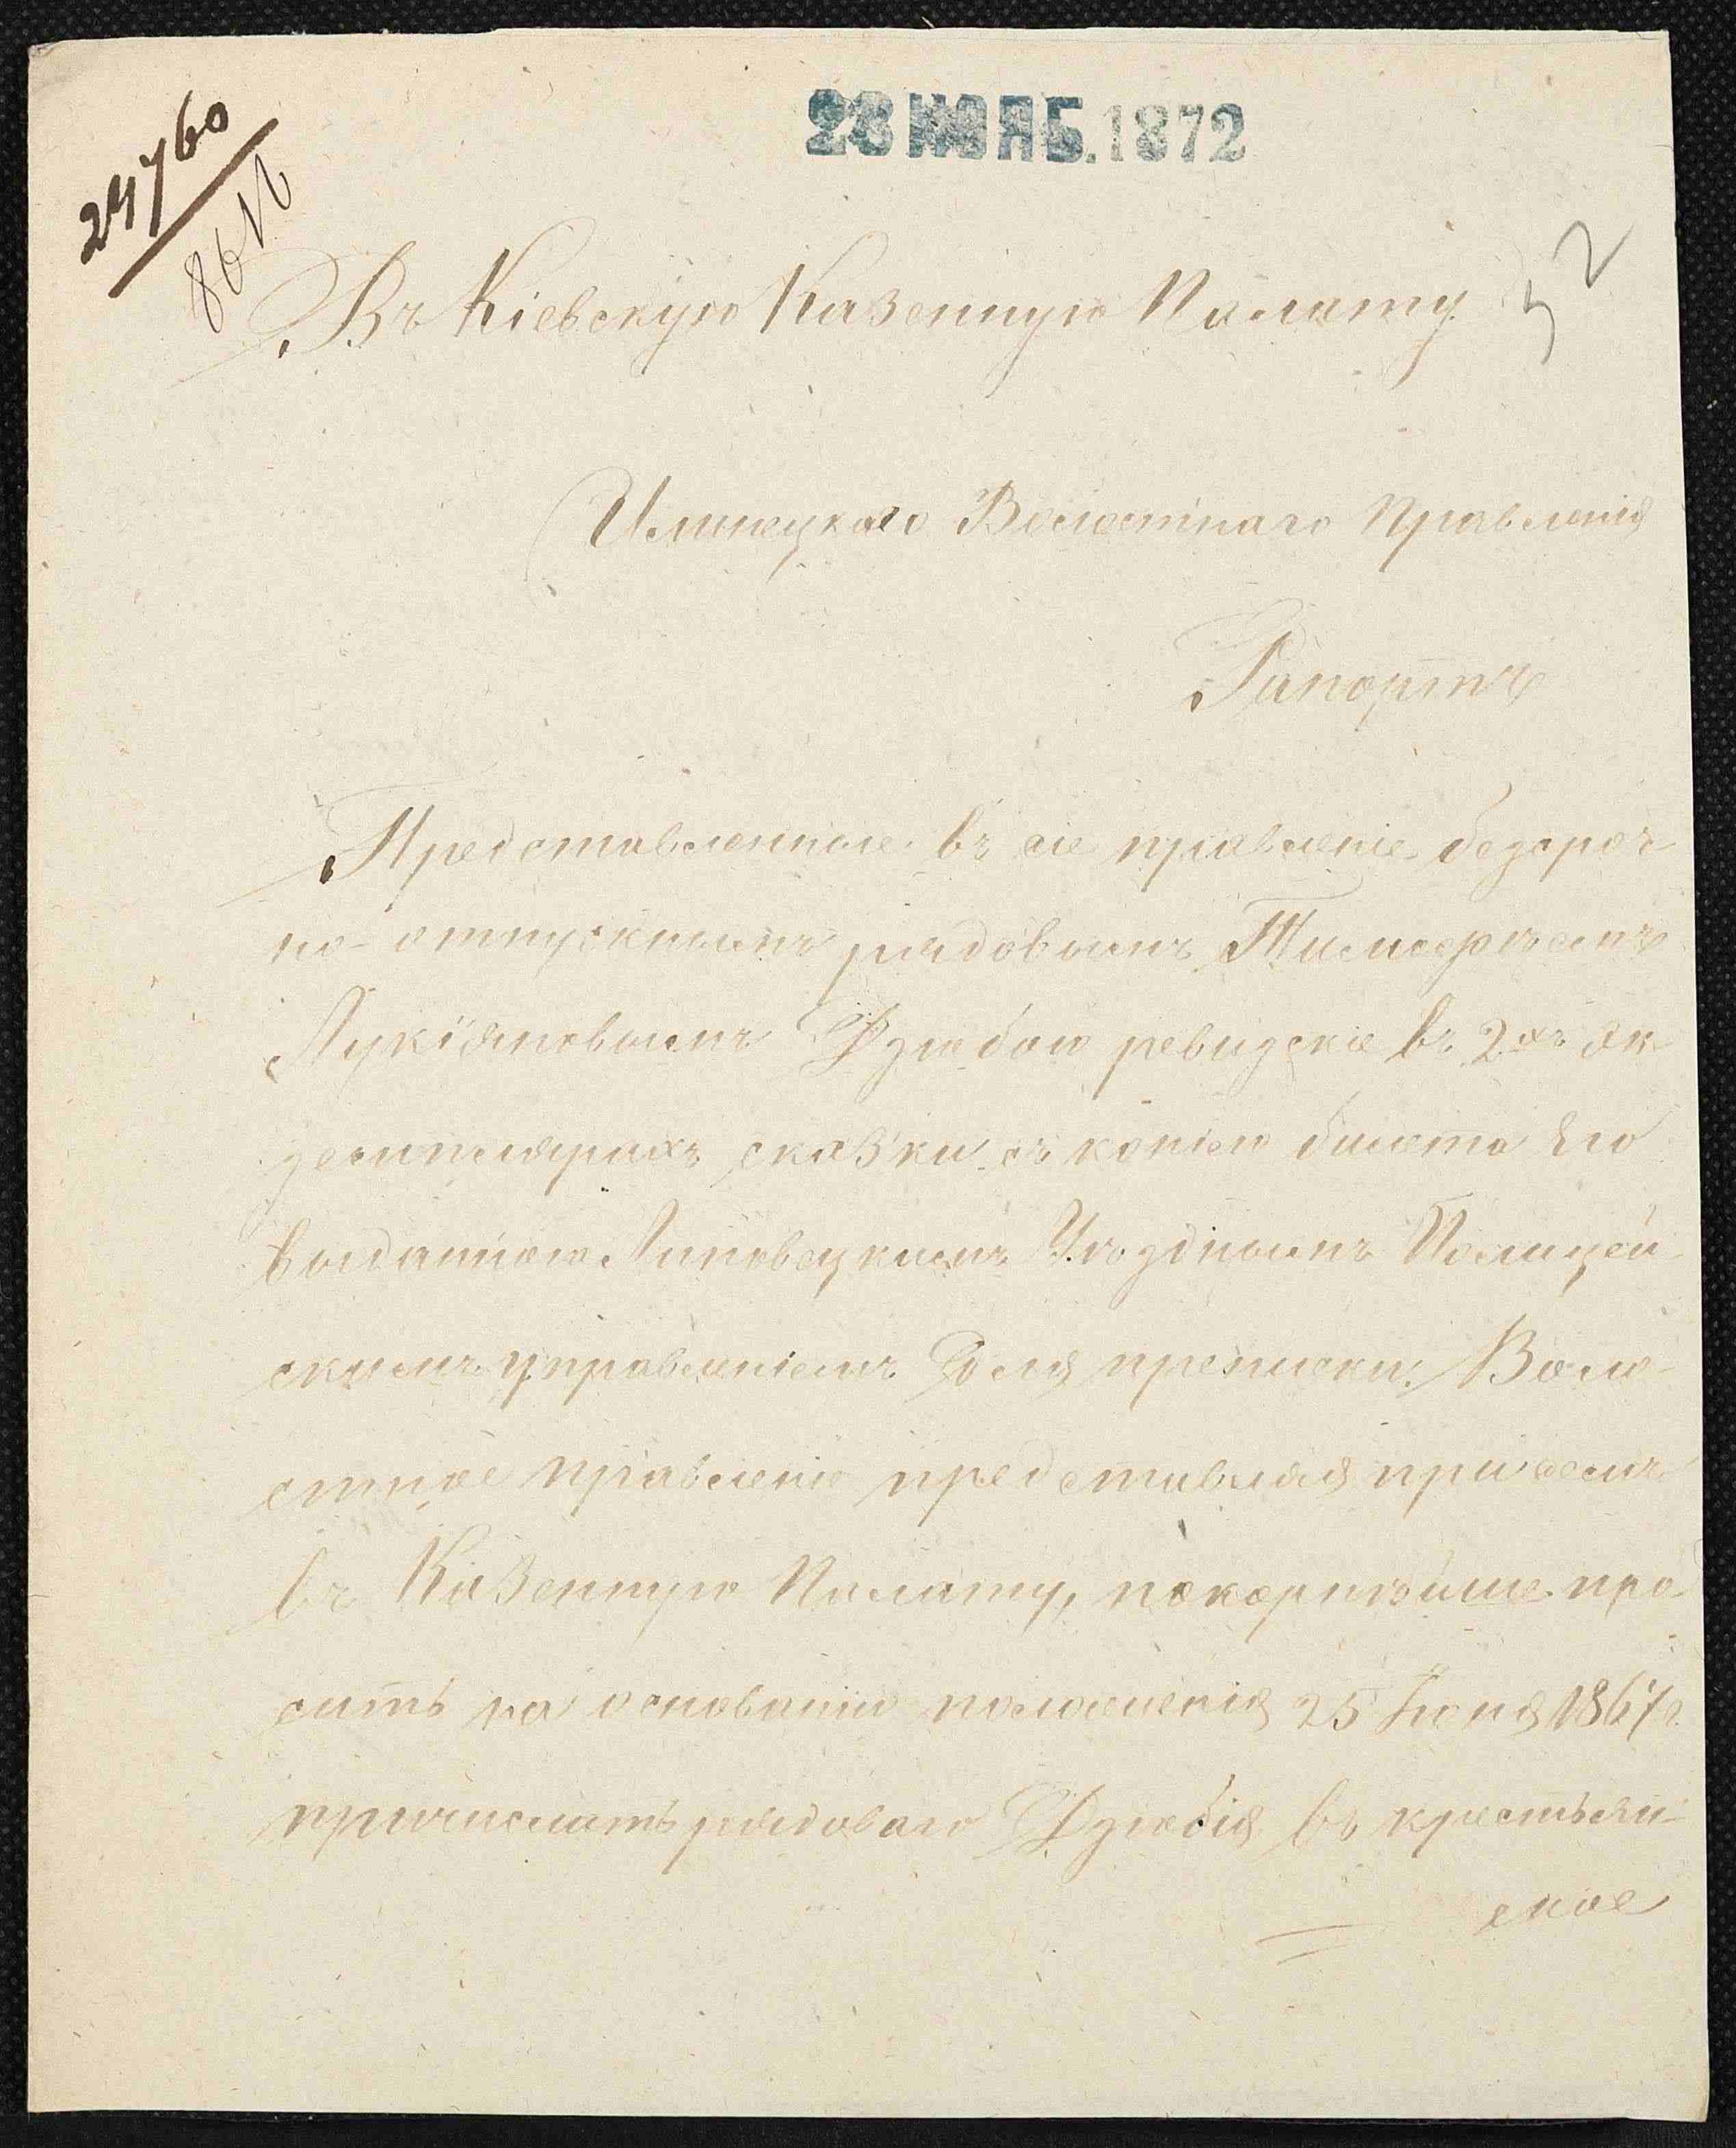 28 НОЯБ. 1872
24760
8611
Въ Кіевскую Казенную Палату
Илинецкаго Волостнаго Правленія
Рапортъ
Представленные въ сіе правленіе безсроч
но-отпускнымъ рядовымъ Тимоѳеемъ
Лукіяновымъ Дзюбою ревизскіе въ 2хъ эк-
земплярахъ сказки съ копіею билета его
выданною Липовецкимъ Уѣзднымъ Полицей
скимъ управленіемъ для преписки. Воло-
стное правленіе представляя при семъ
въ Казенную Палату, покорнѣйше про
ситъ на основаніи положенія 25 Іюня 1867 г.
причислить рядоваго Дзюбія въ крестьян-
ское